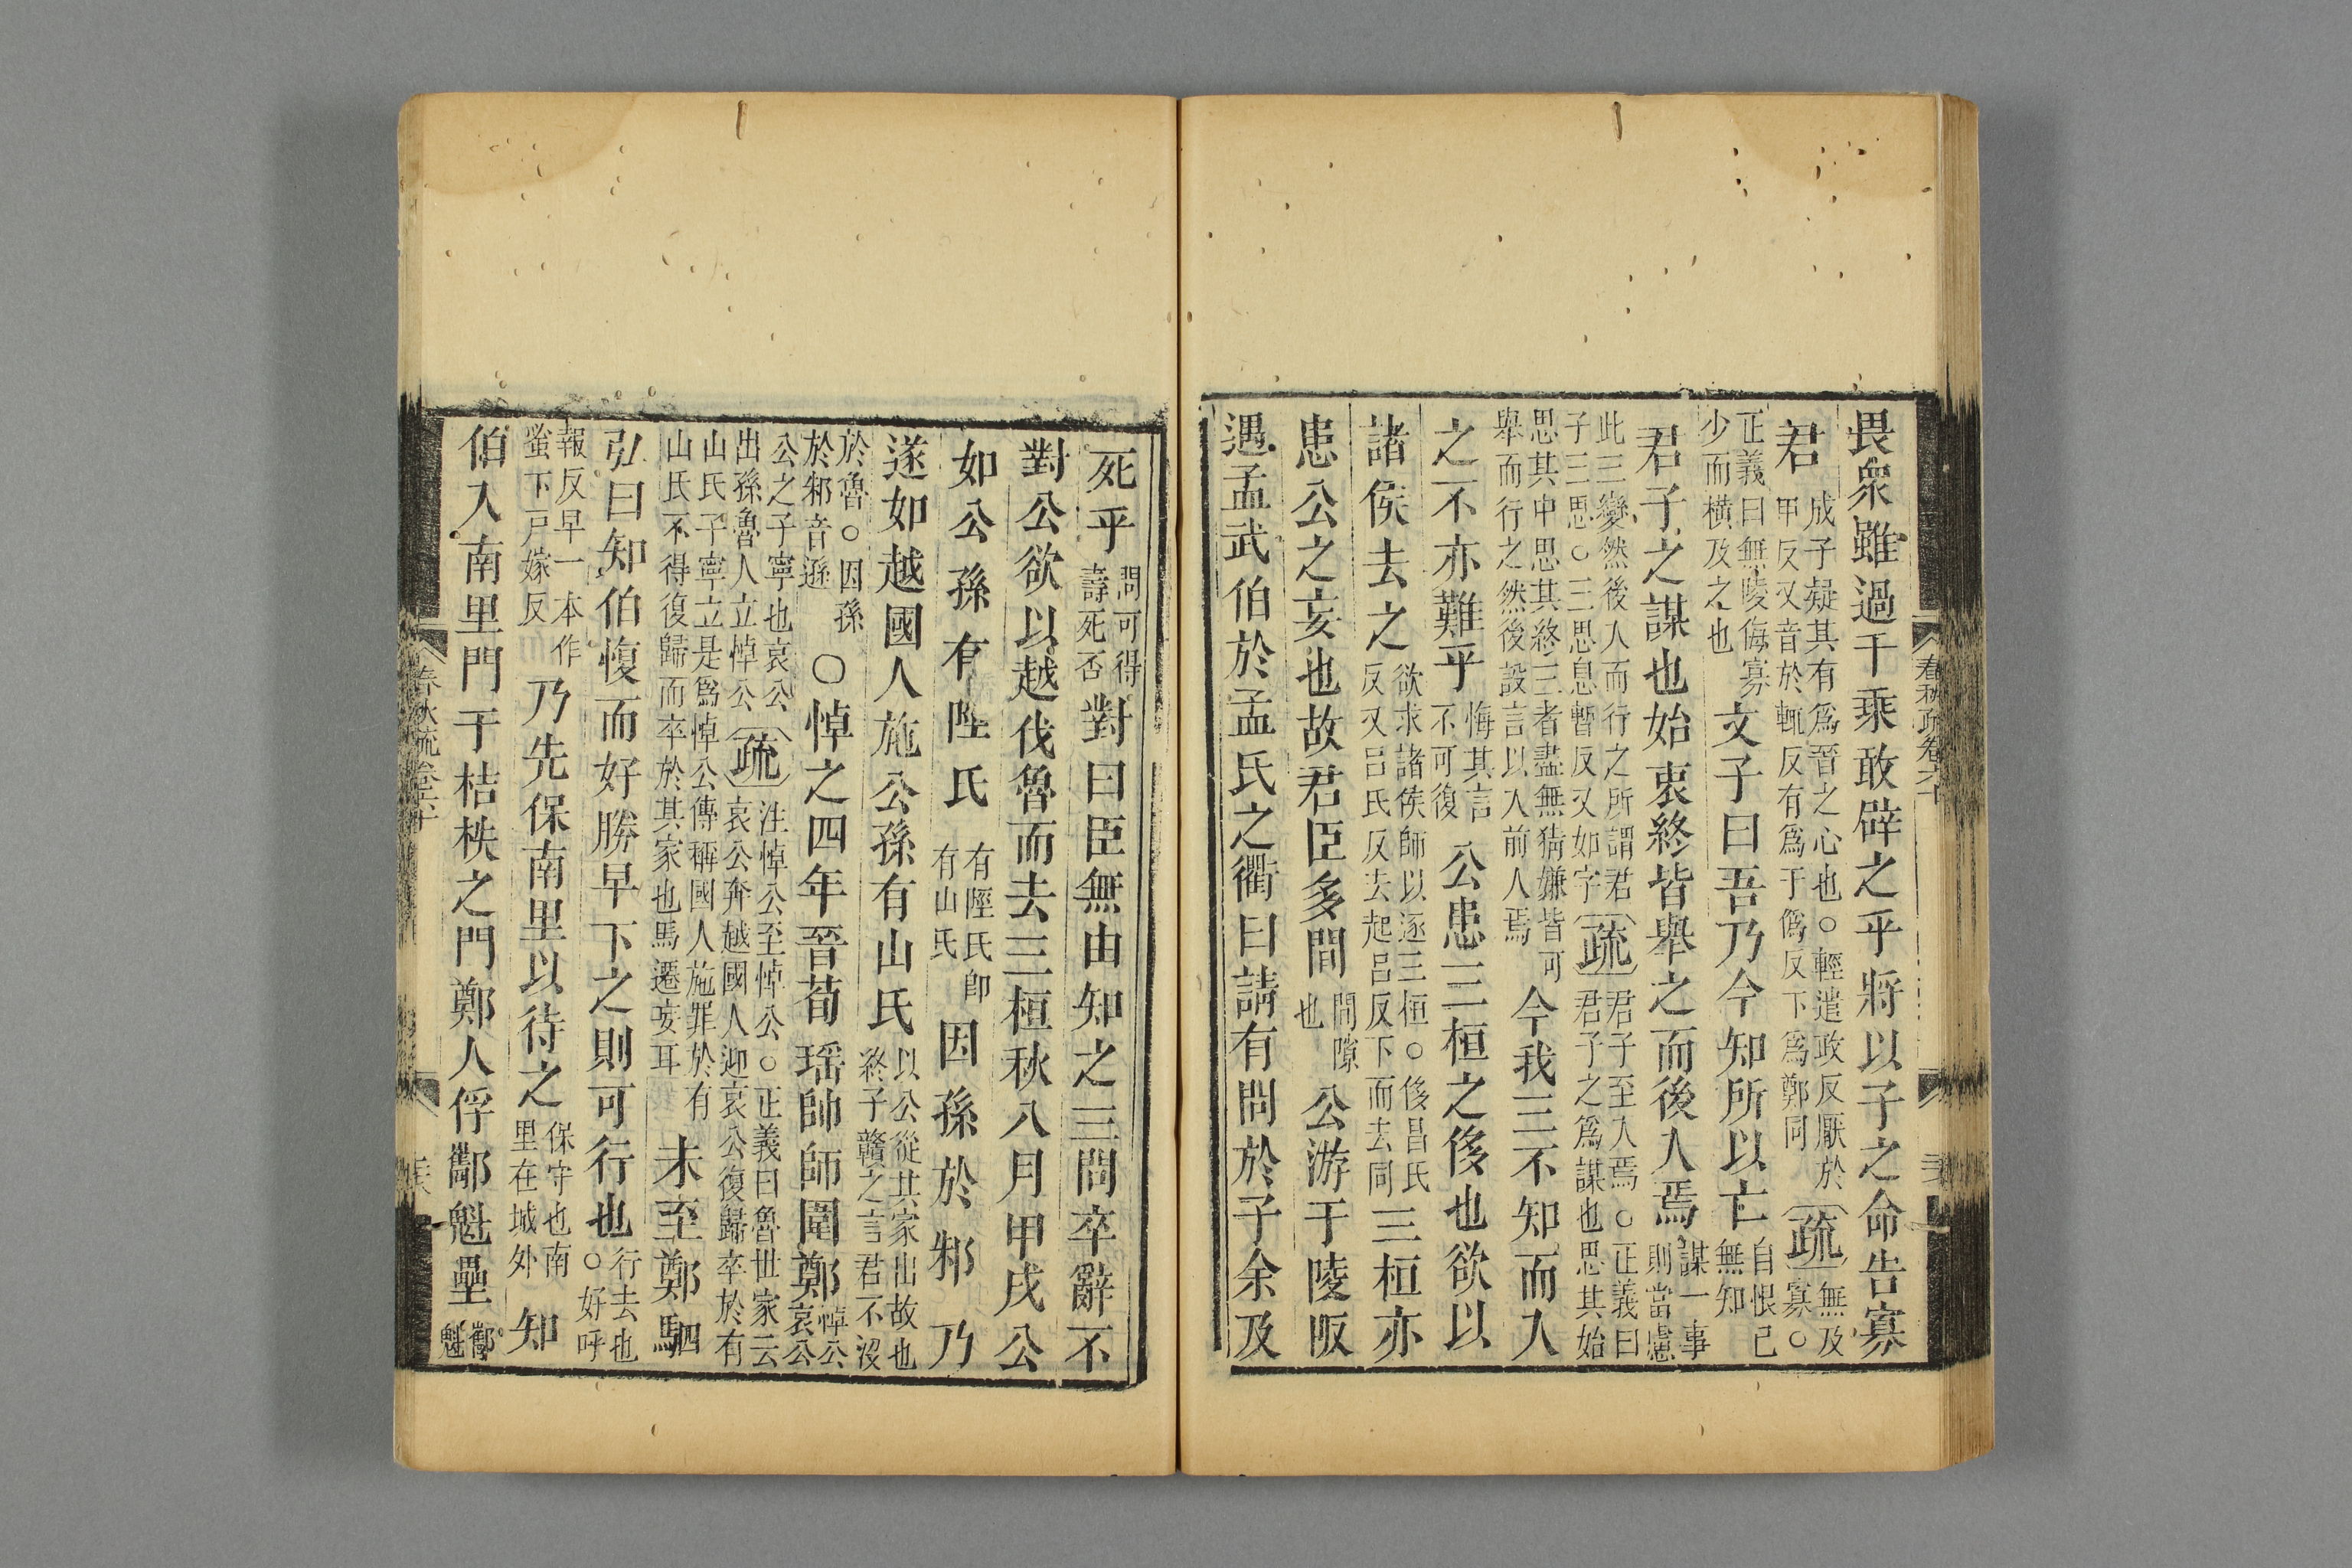 畏衆雖過千乘敢辟之乎將以子之命告寡
君成子疑其有爲晉之心也○輕遣政反厭於甲反又音於輒反有爲于僞反下爲鄭同疏無及寡○
正義曰無陵侮寡少而横及之也文子曰吾乃今知所以亡自恨已無知
君子之謀也始衷終皆舉之而後入焉謀一事則當慮
此三變然後入而行之所謂君子三思○三思息暫反又如字疏君子至入焉○正義曰君子之爲謀也思其始
思其中思其終三者盡無猜嫌皆可舉而行之然後設言以入前人焉今我三不知而入
之不亦難乎悔其言不可復公患三桓之侈也欲以
諸侯去之欲求諸侯師以逐三桓○侈昌氏反又呂氏反去起呂反下而去同三桓亦
患公之妄也故君臣多間間隙也公游于陵阪
遇孟武伯於孟氏之衢曰請有問於子余及
死乎問可得壽死否對曰臣無由知之三問卒辭不
對公欲以越伐魯而去三桓秋八月甲戌公
如公孫有陘氏有陘氏即有山氏因孫於邾乃
遂如越國人施公孫有山氏以公從其家出故也終子贛之言君不沒
於魯○因孫於邾音遜○悼之四年晉荀瑶帥師圍鄭悼公哀公
公之子寧也哀公出孫魯人立悼公疏注悼公至悼公○正義曰魯世家云哀公奔越國人迎哀公復歸卒於有
山氏子寧立是爲悼公傳稱國人施罪於有山氏不得復歸而卒於其家也馬遷妄耳未至鄭駟
弘曰知伯愎而好勝早下之則可行也行去也○好呼
報反早一本作蚤下戸嫁反乃先保南里以待之保守也南里在城外知
伯入南里門于桔柣之門鄭人俘酅魁壘酅魁
春秋疏卷六十
春秋疏卷六十